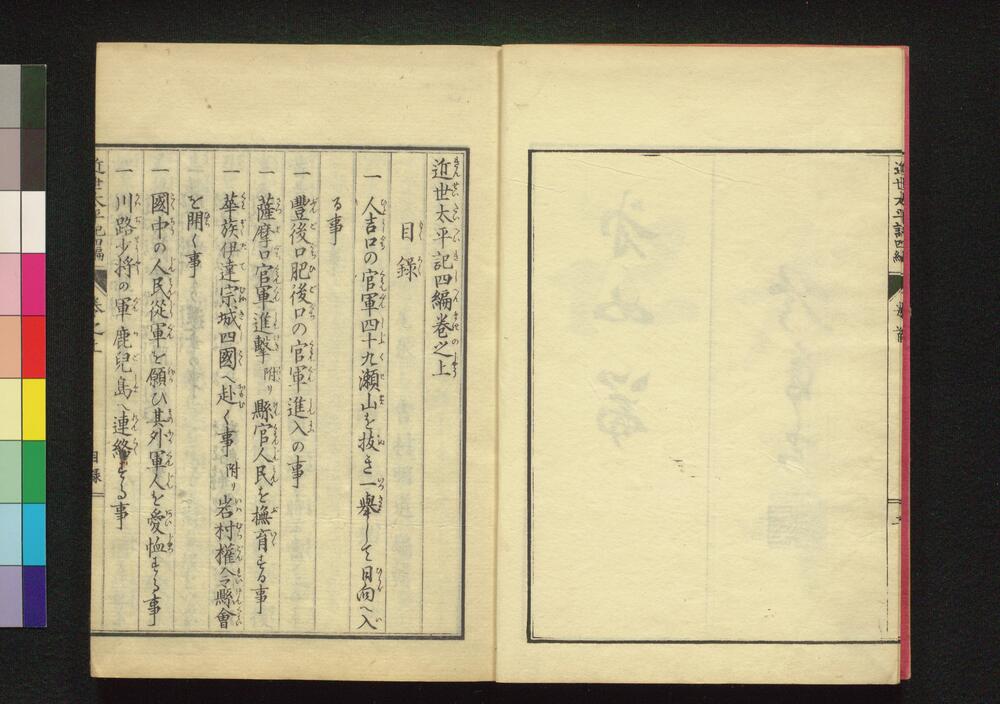 近世太平記四編卷之上
目錄
一 人吉口の官軍四十九瀬山を抜き一擧して日向へ入
る事
一 豐後口肥後口の官軍進入の事
一 薩摩口官軍進擊附リ縣官人民を撫育する事
一 華族伊達宗城四國へ赴く事附リ岩村權令縣會
を開く事
一 國中の人民從軍を願ひ其外軍人を愛恤する事
一 川路少將の軍鹿兒島へ連絡する事
近世太平記四編 卷之上 目錄